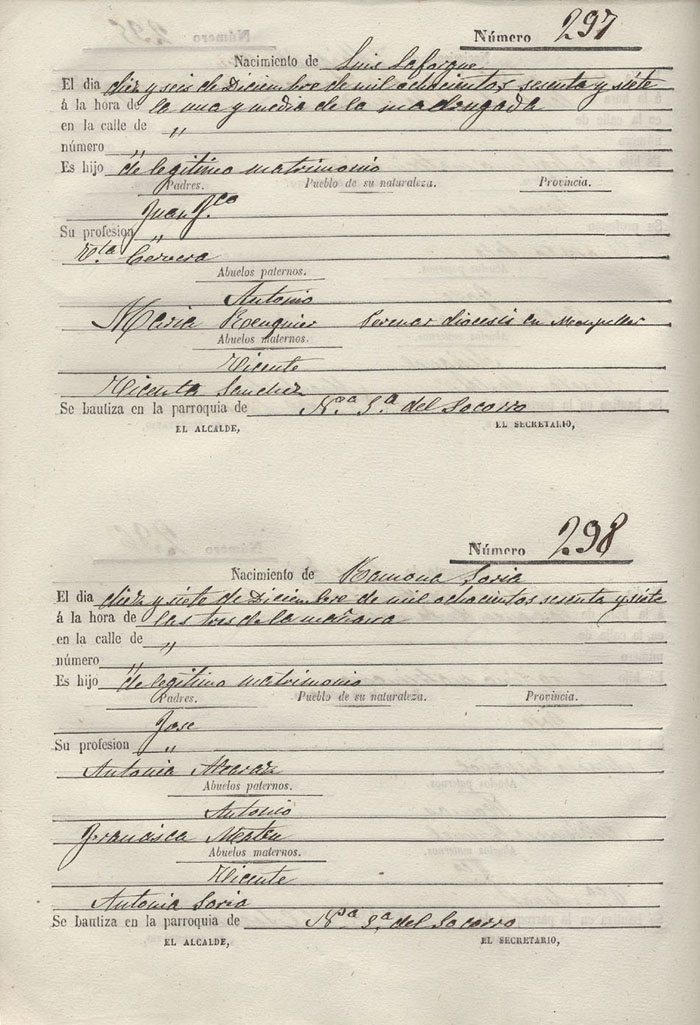 Número 297
Nacimiento de Luis Lafarque
El dia diez y seis de Diciembre de mil ochocientos sesenta y siete
á la hora de la una y media de la madrugada
en la calle de "
número "
Es hijo de legitimo matrimonio
Padres. Pueblo de su naturaleza. Provincia.
Juan Fco
Su profesion "
Vta Cervera
Abuelos paternos.
Antonio
Maria diocesis en Mompeller
Abuelos maternos.
Vicente
Vicenta Sanchez
Se bautiza en la parroquia de Nra Sa del Socorro
EL ALCALDE, EL SECRETARIO,
Número 298
Nacimiento de Ramona Soria
El dia diez y siete de Diciembre de mil ochocientos sesenta y siete
á la hora de las tres de la mañana
en la calle de "
número "
Es hijo de legitimo matrimonio
Padres. Pueblo de su naturaleza. Provincia.
Jose
Su profesion "
Antonia Alcaraz
Abuelos paternos.
Antonio
Francisca Mateu
Abuelos maternos.
Vicente
Antonia Soria
Se bautiza en la parroquia de Nra Sa del Socorro
EL ALCALDE, EL SECRETARIO,